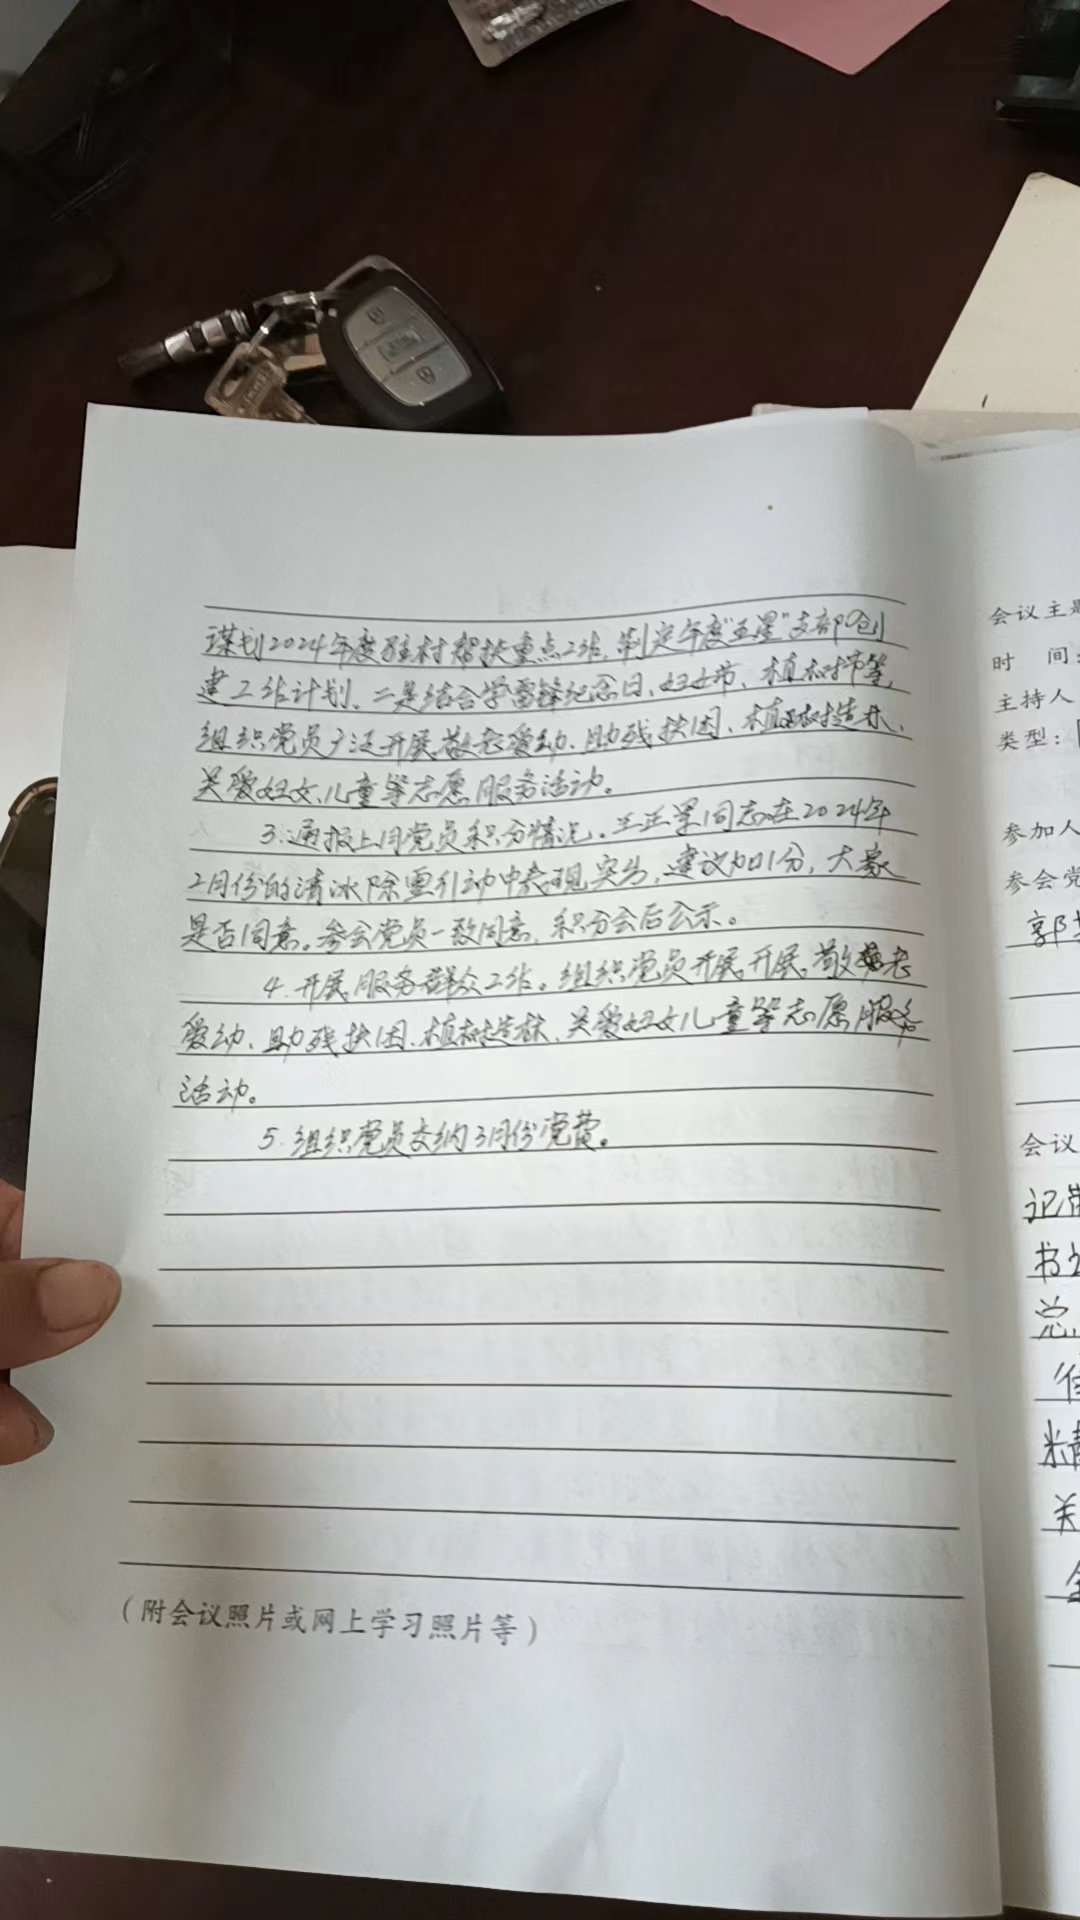 谋划2024年度驻村帮扶重点工作,制定年度"五星"支部创
建工作计划。二是结合学雷锋纪念日、妇女节、植树节等,
组织党员广泛开展敬老爱幼、助残扶困、植树造林、
关爱妇女、儿童等志愿服务活动。
3.通报上月党员积分情况。王正军同志在2024年
2月份的清冰除雪行动中表现突出,建议加1分,大家
是否同意。参会党员一致同意,积分会后公示。
4.开展服务群众工作。组织党员开展开展敬老
爱幼、助残扶困、植树造林、关爱妇女儿童等志愿服务
活动。
5.组织党员交纳3月份党费。
(附会议照片或网上学习照片等)
会议主题
时 间:
主持人
类型:
参加人
参会党
郭
会议
记
书
总
精
关
全